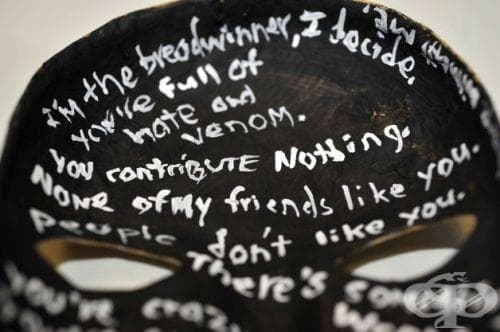 I'm the breadwinner, I decide.
You're full of
hate and
venom.
you contribute Nothing.
NONE of my friends like you.
people don't like you.
There's
You're crazy